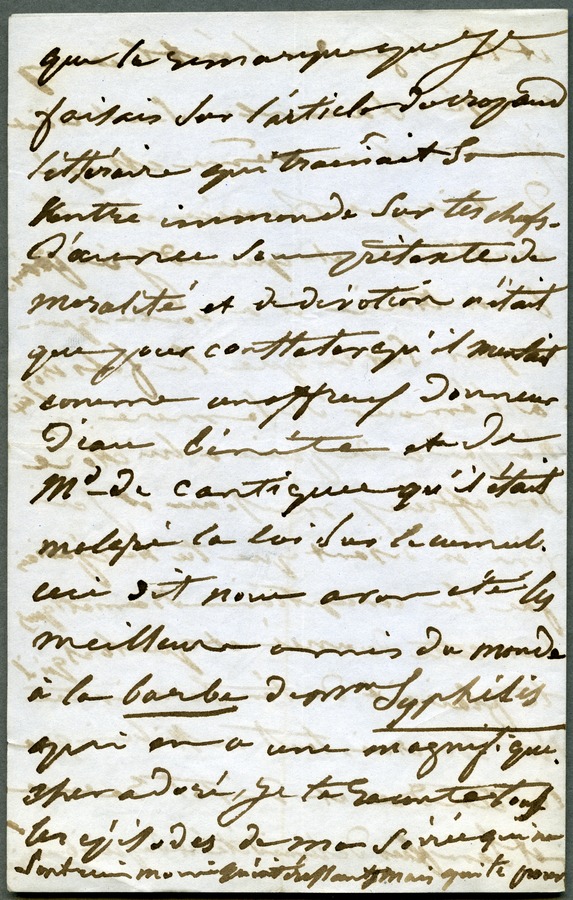 que la remarque que je
faisais sur l'article du crapaud
littéraire qui trainait So
Ventre immonde sur les chefs-
d'œuvre sous prétexte de
moralité et de dévotion n'était
que pour constater qu'il mentait
comme un affreux donneur
d'eau bénite et de
Md de cantiques qu'il était
malgré la loi sur le cumul.
ceci dit nous avons été les
meilleurs amis du monde
à la barbe de Syphilis
qui en a une magnifique.
cher adoré, je te raconte tous
les épisodes de ma soirée qui ne
sont rien moins qu'intéressants mais qui te